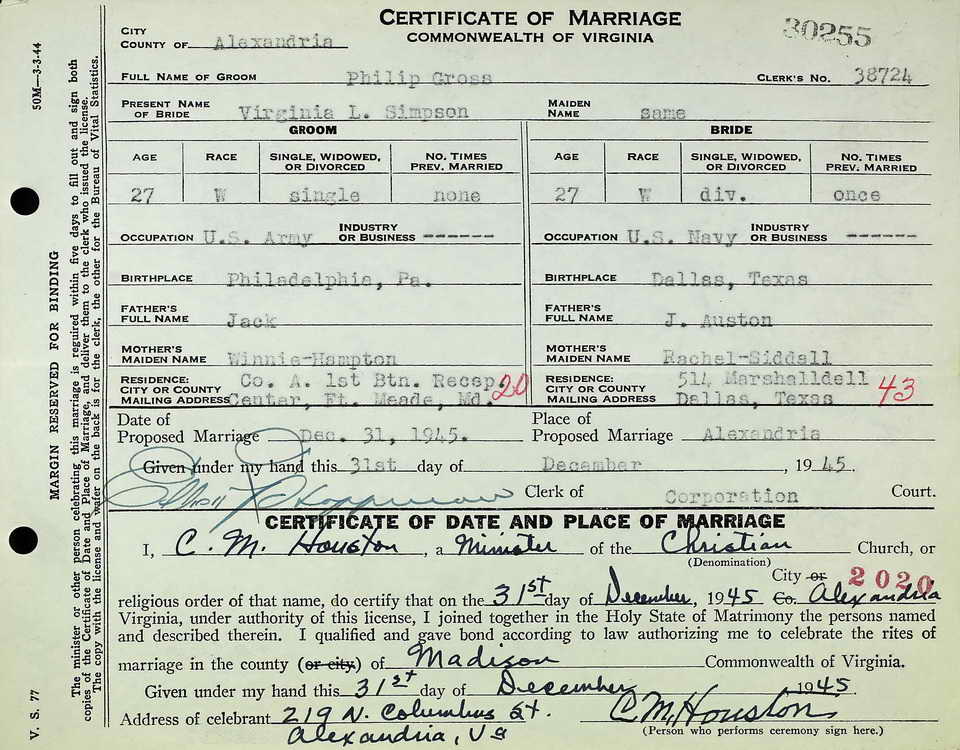 CERTIFICATE OF MARRIAGE
COMMONWEALTH OF VIRGINIA
30255
CITY
COUNTY OF Alexandria
FULL NAME OF GROOM Philip Gross CLERK'S NO. 38724
PRESENT NAME OF BRIDE Virginia L. Simpson MAIDEN NAME same
GROOM BRIDE
AGE RACE SINGLE, WIDOWED, OR DIVORCED NO. TIMES PREV. MARRIED AGE RACE SINGLE, WIDOWED, OR DIVORCED NO. TIMES PREV. MARRIED
27 W single none 27 W div. once
OCCUPATION U.S. Army INDUSTRY OR BUSINESS ------- OCCUPATION U.S. Navy INDUSTRY OR BUSINESS -------
BIRTHPLACE Philadelphia, Pa. BIRTHPLACE Dallas, Texas
FATHER'S FULL NAME Jack FATHER'S FULL NAME J. Auston
MOTHER'S MAIDEN NAME Winnie-Hampton MOTHER'S MAIDEN NAME Rachel-Siddall
RESIDENCE: CITY OR COUNTY MAILING ADDRESS Co. A. 1st Btn. Recep. Center, Ft. Meade, Md. 20 RESIDENCE: CITY OR COUNTY MAILING ADDRESS 514 Marshalldell Dallas, Texas 43
Date of Proposed Marriage Dec. 31, 1945. Place of Proposed Marriage Alexandria
Given under my hand this 31st day of December, 1945.
Clerk of Corporation Court.
CERTIFICATE OF DATE AND PLACE OF MARRIAGE
I, C. M. Houston, a Minister of the Christian Church, or
(Denomination)
2020
City or
religious order of that name, do certify that on the 31st day of December, 1945 Co. Alexandria
Virginia, under authority of this license, I joined together in the Holy State of Matrimony the persons named
and described therein. I qualified and gave bond according to law authorizing me to celebrate the rites of
marriage in the county (or city) of Madison Commonwealth of Virginia.
Given under my hand this 31st day of December 1945
Address of celebrant 219 N. Columbus St. C M, Houston
Alexandria, Va (Person who performs ceremony sign here.)
50M—3-3-44
MARGIN RESERVED FOR BINDING
The minister or other person celebrating this marriage is required within five days to fill out and sign both
copies of the Certificate of Date and Place of Marriage, and deliver them to the clerk who issued the license.
The copy with the license and wafer on the back is for the clerk, the other for the Bureau of Vital Statistics.
V. S. 77